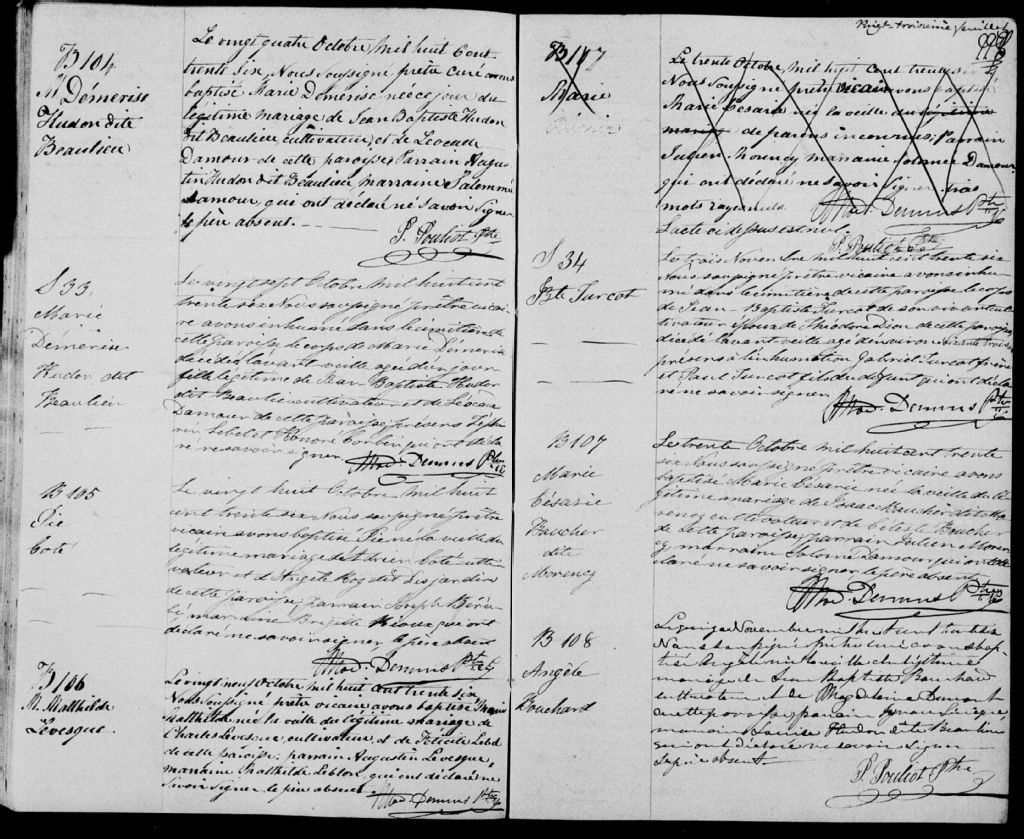 B 104
M Démerise
Hudon dite
Beaulieu
Le vingt quatre Octobre mil huit Cent
trente six, Nous Soussigné prêtre curé avons
baptisé Marie Démerise née ce jour du
légitime mariage de Jean Baptiste Hudon
dit Beaulieu, cultivateur, et de Léocade
Damour de cette paroisse; Parrain Augus-
tin Hudon dit Beaulieu marraine Salomée
Damour, qui ont déclaré ne savoir signer
le père absent.
P. Pouliot Ptre
S 33.
Marie
Démérise
Hudon dit
Beaulieu
Le vingt sept Octobre mil huit cent
trente six Nous soussigné prêtre vicai-
re avons inhumé dans le cimetière de
cette paroisse le corps de Marie Démerise
décédée l'avant veille agée d'un jour
fille légitime de Jean Baptiste Hudon
dit Beaulieu cultivateur et de Léocade
Damour de cette paroisse, présens
Lebel et Honoré qui ont déclaré
ne savoir signer.
B 105
Pie
Coté
Le vingt huit Octobre mil huit
cent trente six Nous soussigné prêtre
vicaire avons baptisé Pie né la veille du
légitime mariage de Coté culti-
vateur et d'Angèle Roy dit Desjardin
de cette paroisse, parrain Joseph
marraine Brigitte qui ont
déclaré ne savoir signer, le père absent
B 106
M. Matthilde
Lévesque
Le vingt neuf Octobre mil huit cent trente six
Nous Soussigné prêtre vicaire avons baptisé Marie
Matthilde née la veille du légitime mariage de
Charles Levesque, cultivateur, et de Félicité Lebel
de cette paroisse; parrain Augustin Levesque,
marraine Mathilde Leblon, qui ont déclaré ne
Savoir signer le père absent.
Vingt-troisième feuillet
B 107
Marie
Le trente Octobre mil huit cent trente six
Nous Soussigné prêtre vicaire avons baptisé
Marie Césarie née la veille du légitime
mariage de parens inconnus; Parrain
Julien Morency marraine Salomée Damour
qui ont déclaré ne savoir signer. trois
mots rayés nuls.
L'acte ci dessus est nul.
P. Pouliot Ptre
S 34
J Bte Turcot
Le trois Novembre mil huit cent trente six
Nous soussigné prêtre vicaire avons inhu-
mé dans le cimetière de cette paroisse le corps
de Jean-Baptiste Turcot de son vivant cul-
tivateur époux de Théodore Dion de cette paroisse
décédé l'avant veille agé d'environ soixante trois ans
présens à l'inhumation Gabriel Turcot frère
et Paul Turcot fils du défunt qui ont décla-
ré ne savoir signer
B 107
Marie
Césarie
Boucher
dite
Morency
Le trente Octobre mil huit cent trente
six Nous soussigné prêtre vicaire avons
baptisé Marie Césarie née la veille du lé-
gitime mariage de Isaac Boucher dit Mo-
rency cultivateur et de Céleste Boucher
de cette paroisse, parrain Julien Moren-
cy marraine Salomé Damour qui ont dé-
claré ne savoir signer le père absent
B 108
Angèle
Bouchard
Le quinze Novembre mil huit cent trente six
Nous soussigné prêtre curé avons bap-
tisé Angèle née la veille du légitime
mariage de Jean Baptiste Bouchard
cultivateur et de Magdelaine Damour
de cette paroisse; parrain Ignace Lévesque,
marraine Louise Hudon dite Beaulieu
qui ont déclaré ne savoir signer
le père absent
P. Pouliot Ptre